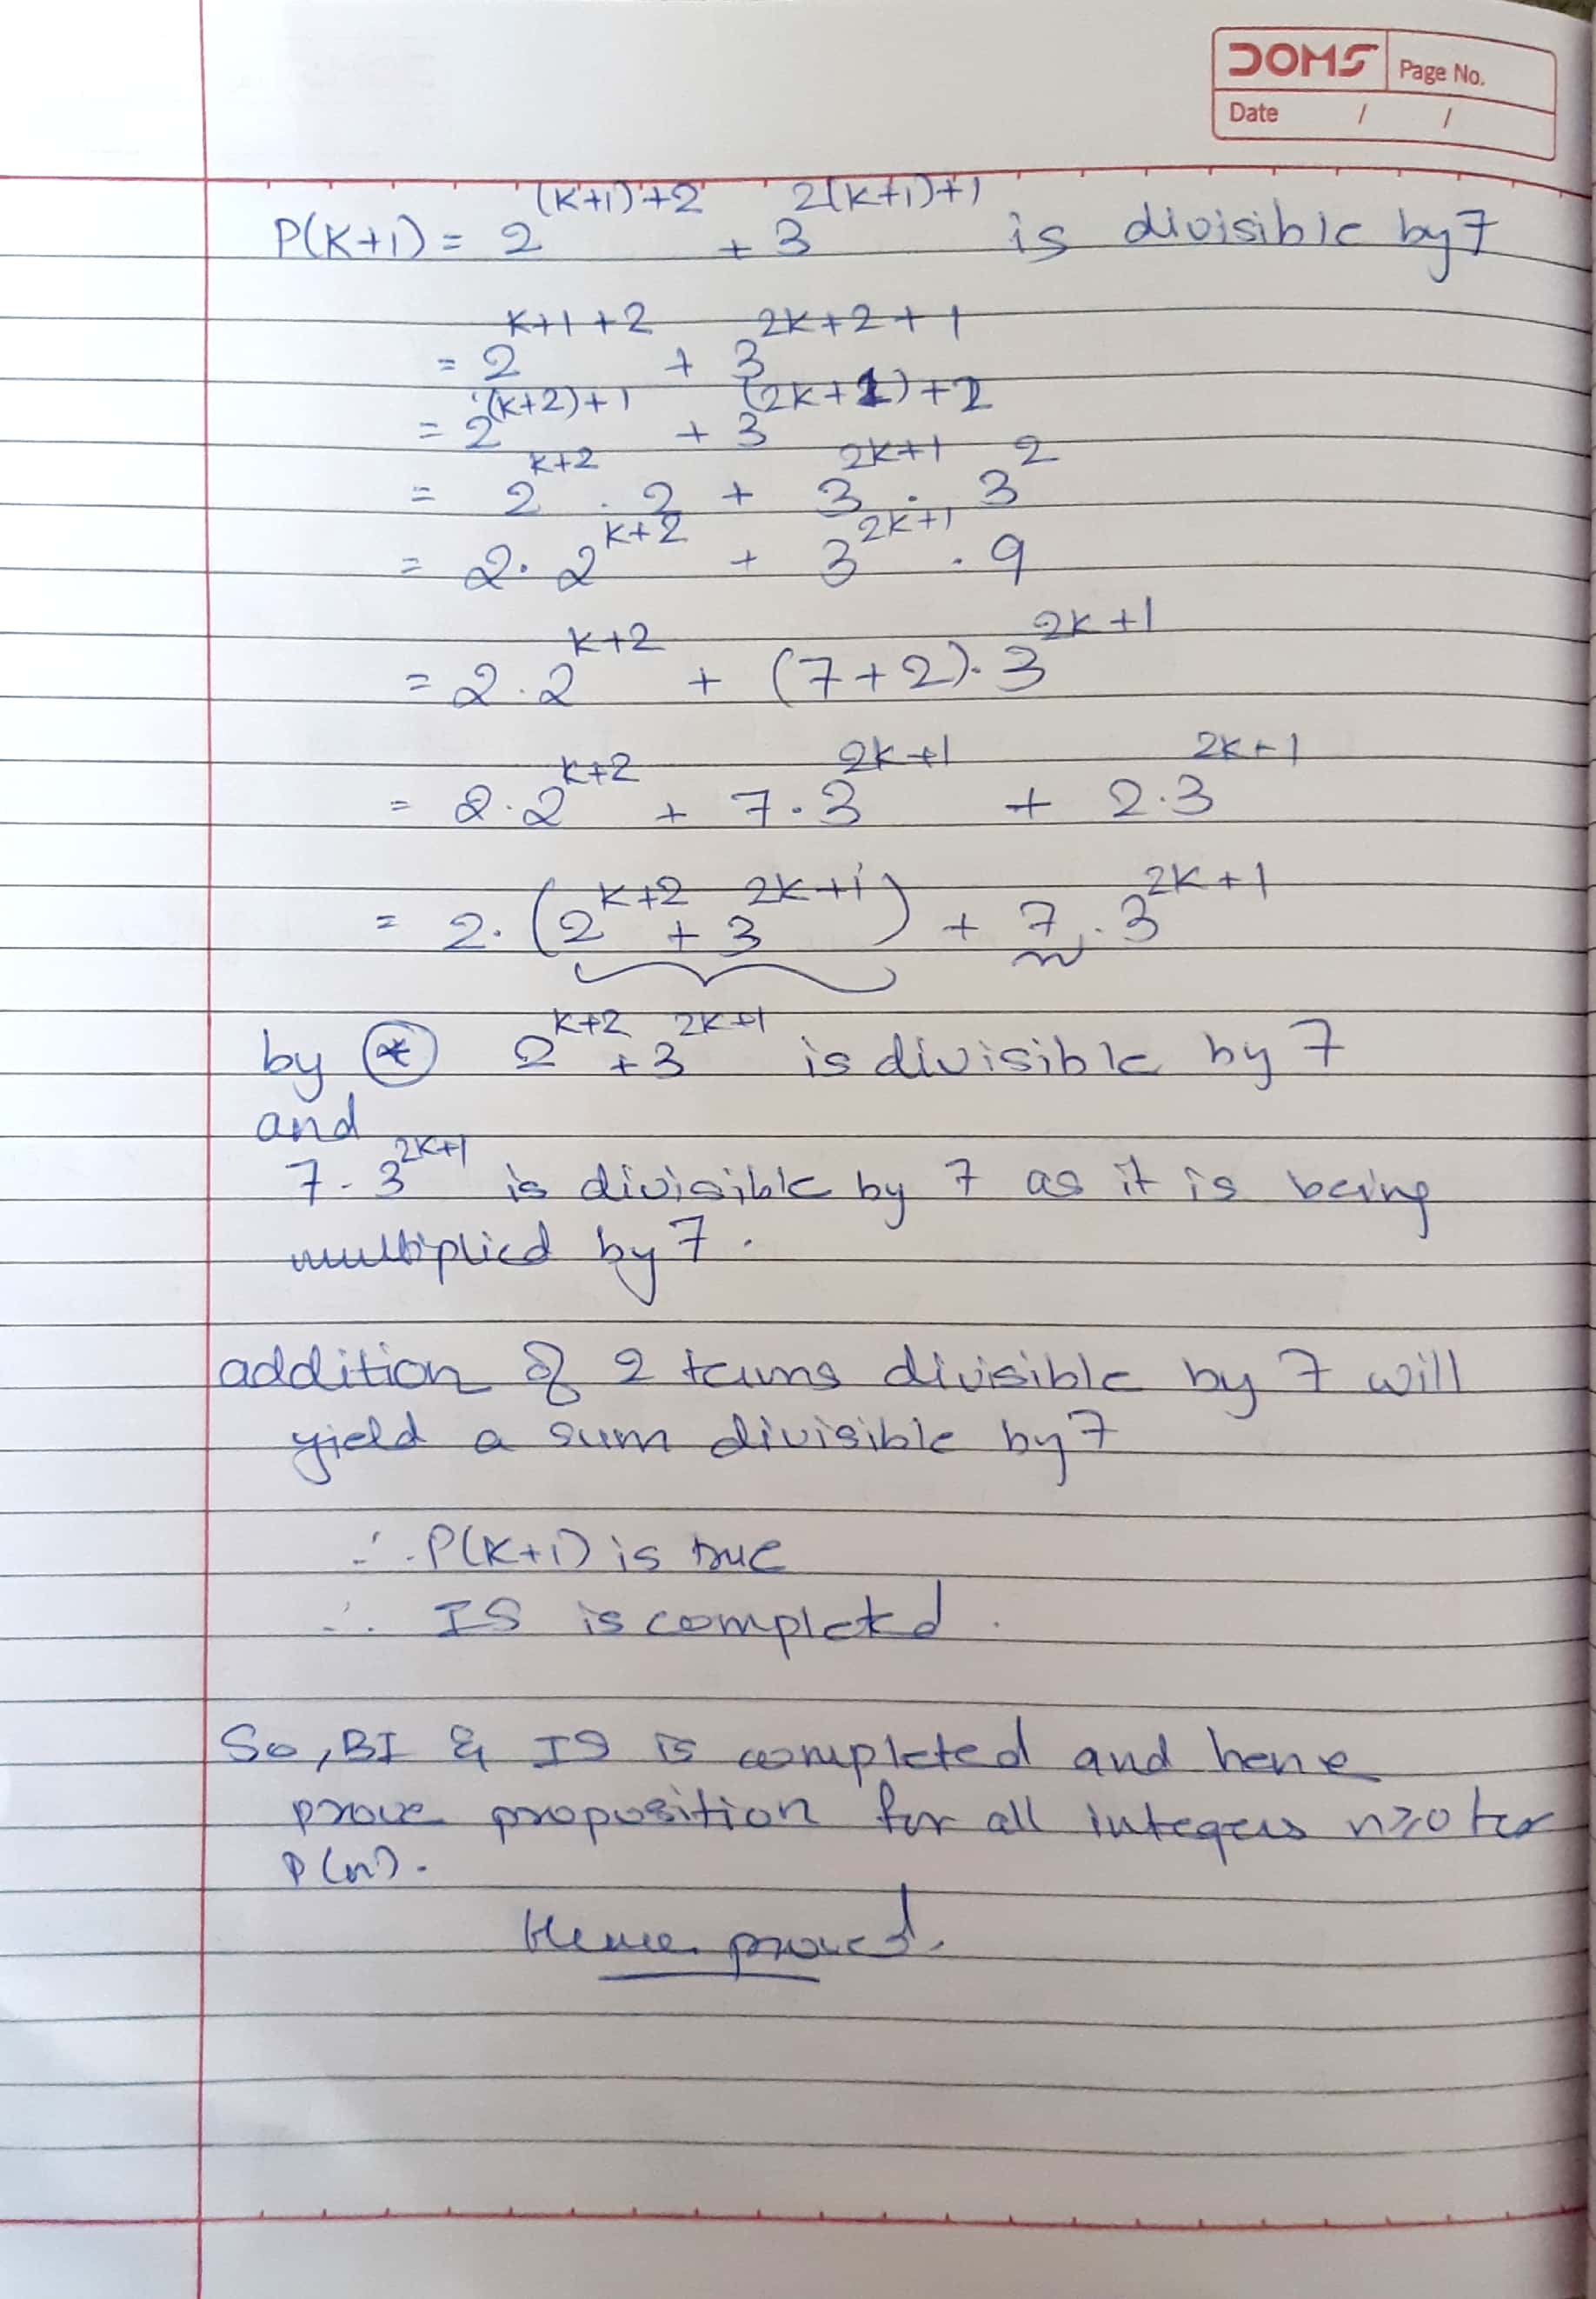 DOMS Page No.
Date / /
P(K+1) = 2^(K+1)+2 + 3^2(K+1)+1 is divisible by 7
= 2^K+1+2 + 3^2K+2+1
= 2^(K+2)+1 + 3^(2K+1)+2
= 2^K+2 . 2 + 3^2K+1 . 3^2
= 2. 2^K+2 + 3^2K+1 . 9
= 2.2^K+2 + (7+2). 3^2K+1
= 2.2^K+2 + 7.3^2K+1 + 2.3^2K+1
= 2. (2^K+2 + 3^2K+1) + 7 . 3^2K+1
by * 2^K+2 + 3^2K+1 is divisible by 7
and
7. 3^2K+1 is divisible by 7 as it is being
multiplied by 7.
addition of 2 terms divisible by 7 will
yield a sum divisible by 7
∴ P(K+1) is true
∴ IS is completed.
So, BI & IS is completed and hene
prove proposition for all integers n≥0
P(n).
Hence proved.